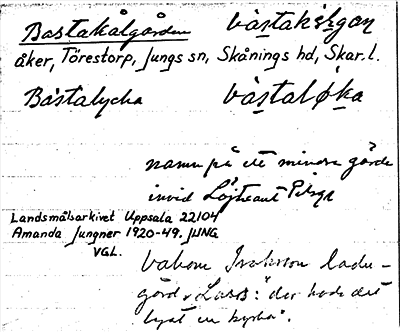 Bastakålgården våstakålgan
åker, Törestorp, Jungs sn, Skånings hd, Skar. l.
Båstalycka våstaløka
namn på ett mindre gärde
invid Löjtnant
Landsmålsarkivet Uppsala 22104
Amanda Jungner 1920-49. JUNG
VGL.
bakom ladu-
gård : "där hade det
en kyrka".